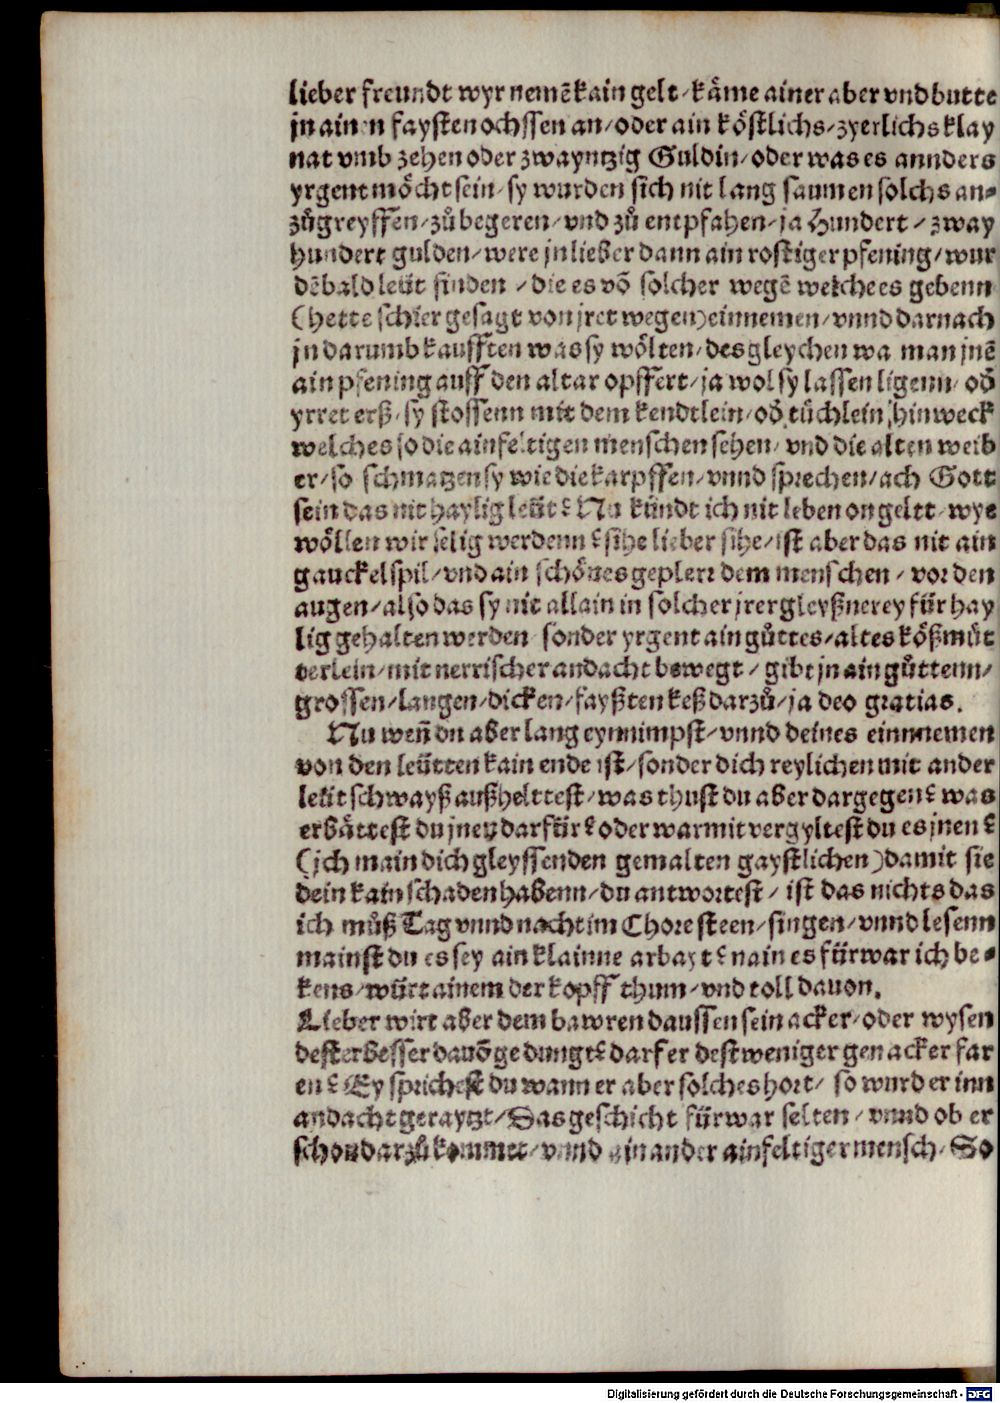 lieber freundt wyr nemẽ kain gelt / käme ainer aber vnd butte
jn ainen faysten ochssen an / oder ain köstlichs / zyerlichs klay
nat vmb zehen oder zwayntzig Guldin / oder was es annders
yrgent möcht sein / sy wurden sich nit lang saumen solchs an⸗
zůgreyffen / zů begeren / vnd zů entpfahen / ja Hundert / zway
hundert gulden / were jn lieber dann ain rostiger pfening / wur
dẽ bald leüt finden / die es võ solcher wegẽ welche es gebenn
(hette schier gesagt von jret wegen) einnemen / vnnd darnach
jn darumb kaufften was sy wölten / des gleychen wa man jnẽ
ain pfening auff den altar opffert / ja wol sy lassen ligenn / od̃
yrret erß / sy stossenn mit dem kendtlein / od̃ tüchlein hinweck
welches so die ainfeltigen menschen sehen / vnd die alten weib
er / so schmatzen sy wie die karpffen / vnnd sprechen / ach Gott
sein das nit haylig leüt? Nu kündt ich nit leben on gelt / wye
wöllen wir selig werdenn? sihe lieber sihe / ist aber das nit ain
gauckelspil / vnd ain schönes geplerr dem menschen / vor den
augen / also das sy nit allain in solcher jrer gleyßnerey für hay
lig gehalten werden sonder yrgent ain gůttes / altes kößmüt
terlein / mit nerrischer andacht bewegt / gibt jn ain gůttenn /
grossen / langen / dicken / fayßten keß darzů / ja deo gratias.
Nu weñ du aber lang eynnimpst / vnnd deines einnnemen
von den leütten kain ende ist / sonder dich reylichen mit ander
leüt schwayß außhelttest / was thust du aber dargegen? was
erbättest du jnen darfür? oder warmit vergyltest du es jnen?
(jch main dich gleyssenden gemalten gaystlichen) damit sie
dein kain schaden habenn / du antwortest / ist das nichts das
ich můß Tag vnnd nacht im Chore steen / singen / vnnd lesenn
mainst du es sey ain klainne arbayt? nain es fürwar ich be⸗
kens / würt ainem der kopff thum / vnd toll dauon.
Lieber wirt aber dem bawren daussen sein acker / oder wysen
dester besser dauõ gedungt? darf er dest weniger gen acker far
en? Ey sprichest du wann er aber solches hort / so wurd er inn
andacht geraytzt / Das geschicht fürwar selten / vnnd ob er
schon darzů kommet / vnnd ain ander ainfeltiger mensch. So
Digitalisierung gefördert durch die Deutsche Forschungsgemeinschaft - DFG